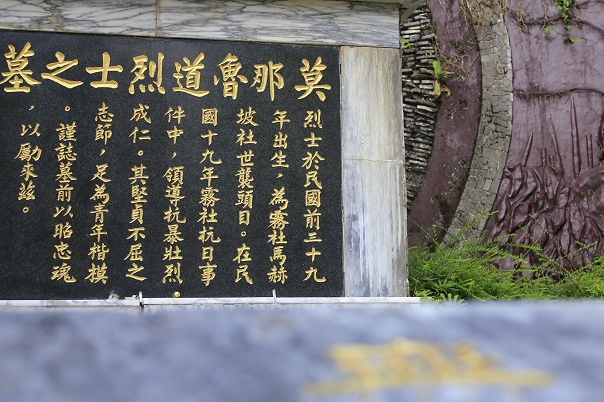 莫那魯道烈士之墓
烈士於民國前三十九
年出生，為霧社馬赫
坡社世襲頭目。在民
國十九年霧社抗日事
件中，領導抗暴壯烈
成仁。其堅貞不屈之
志節，足為青年楷模
。謹誌墓前以昭忠魂
，以勵來茲。